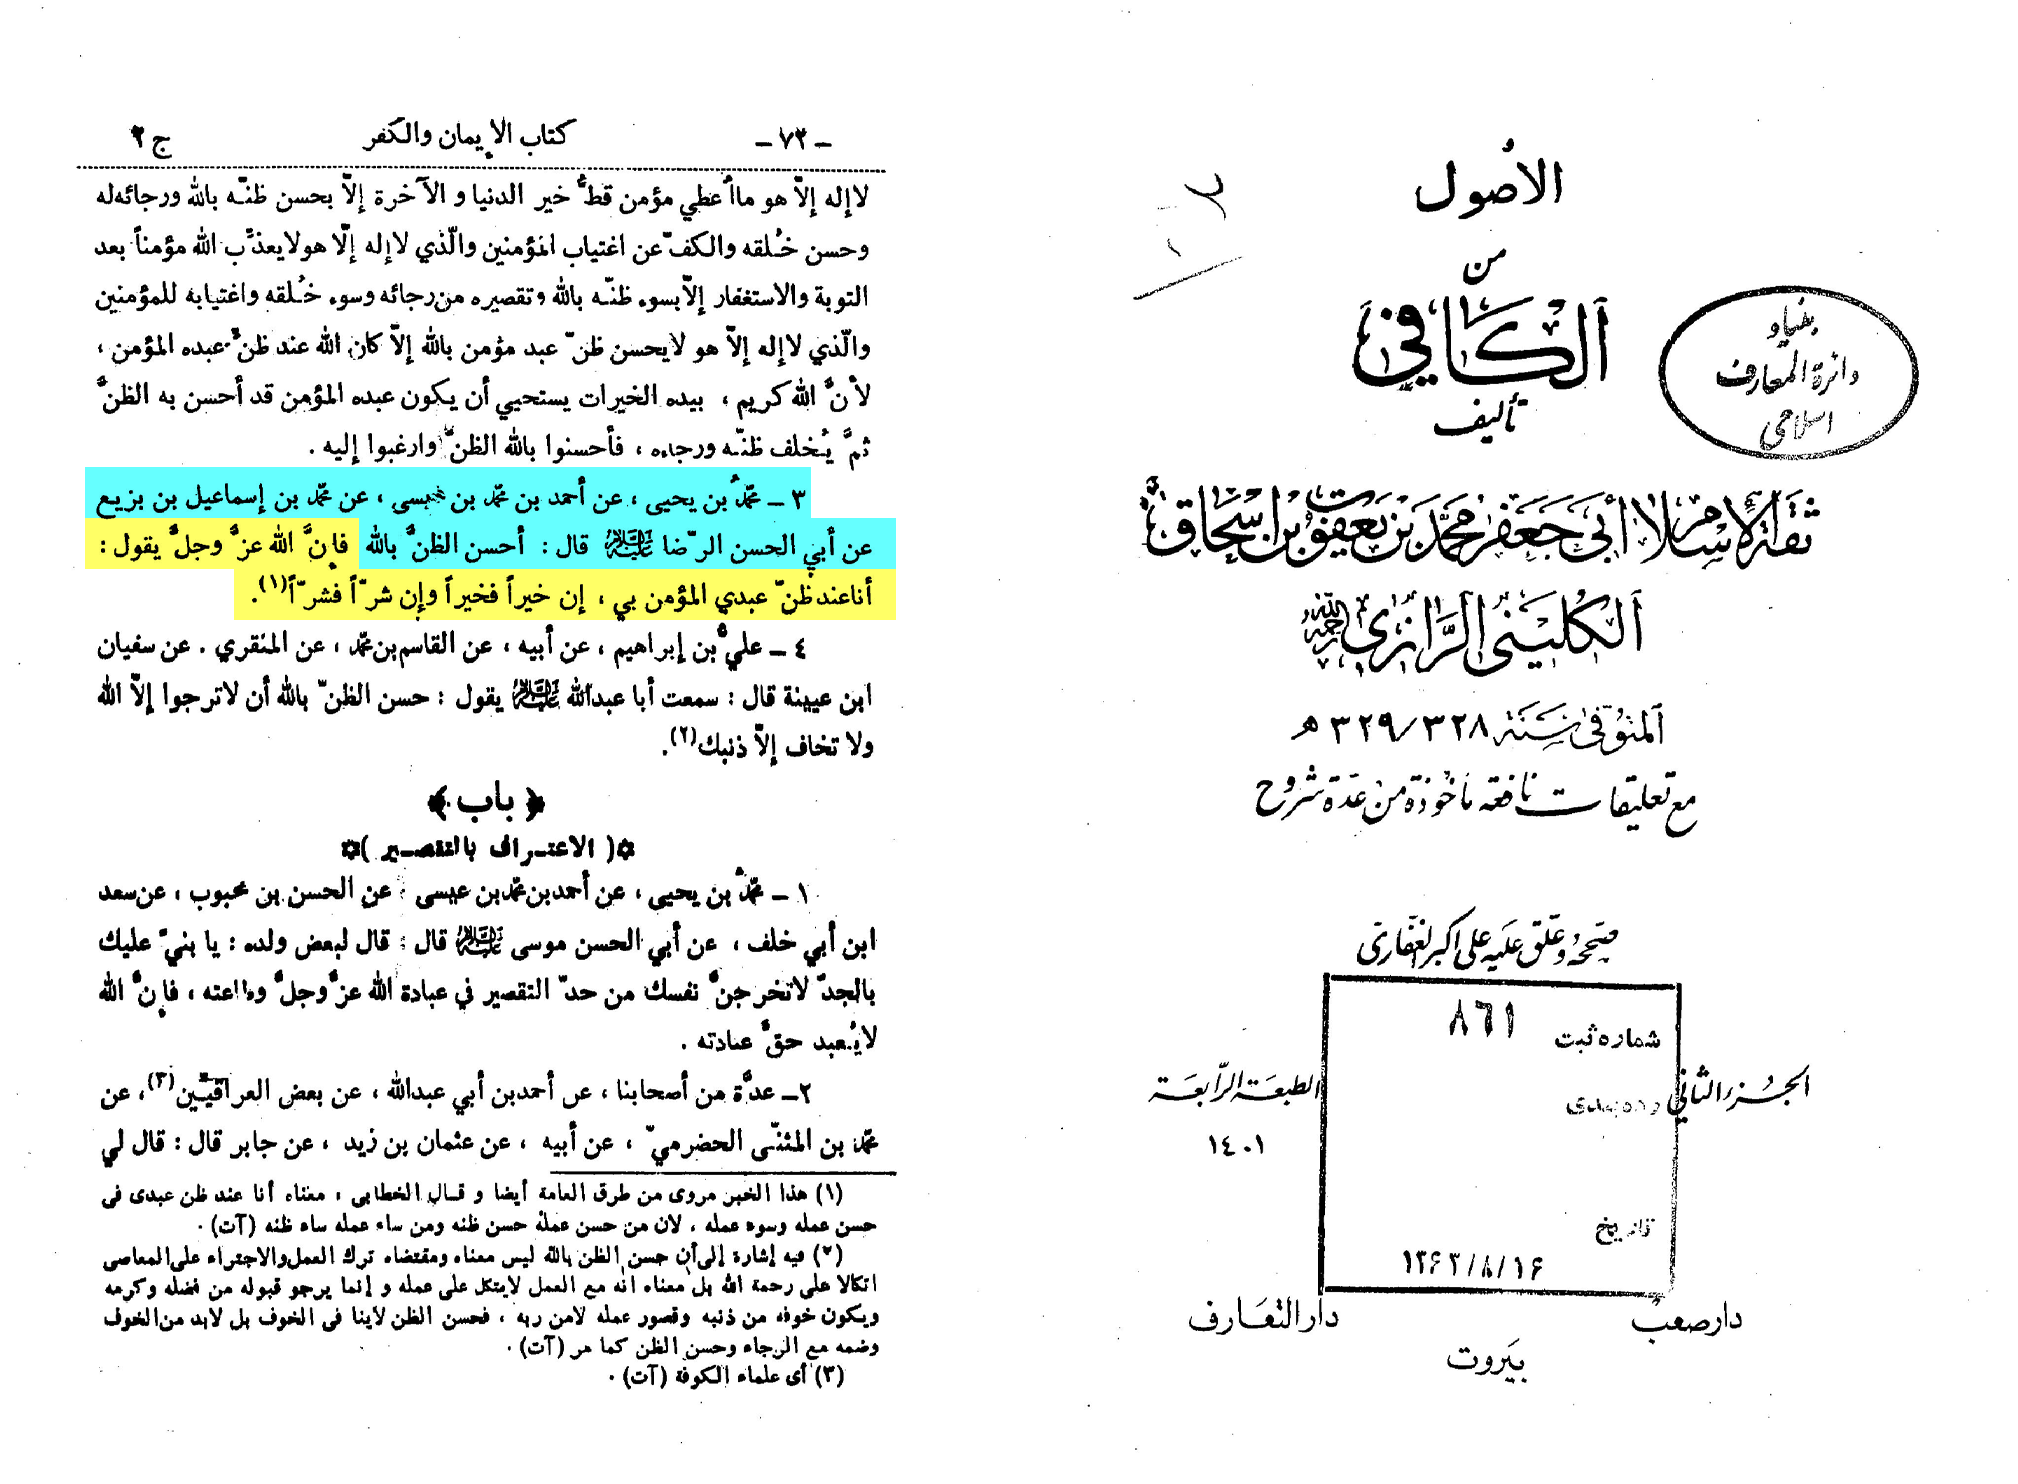 الأصول
من
الكافي
تأليف
ثقة الإسلام أبي جعفر محمد بن يعقوب بن إسحاق
الكليني الرازي رحمه الله
المتوفى سنة ٣٢٨/٣٢٩ ه
مع تعليقات نافعة مأخوذة من عدة شروح
صححه وعلق عليه علي اكبر الغفاري
بنياد
دائرة المعارف
اسلامي
شماره ثبت ٨٦١
رده بندى
تاريخ
١٣۶٣/٨/١۶
الجزء الثاني
الطبعة الرابعة
١٤٠١
دار صعب
دار التعارف
بيروت
ـ ٧٢ ـ كتاب الإيمان والكفر ج ٢
لاإله إلاّ هو ماأُعطي مؤمن قطُّ خير الدنيا و الآخرة إلاّ بحسن ظنّه بالله ورجائه له
وحسن خُلقه والكفّ عن اغتياب المؤمنين والّذي لاإله إلّا هو لايعذِّب الله مؤمناً بعد
التوبة والاستغفار إلاّ بسوء ظنّه بالله وتقصيره من رجائه وسوء خُلقه واغتيابه للمؤمنين
والّذي لاإله إلاّ هو لايحسن ظنّ عبد مؤمن بالله إلاّ كان الله عند ظنِّ عبده المؤمن ،
لأنَّ الله كريم ، بيده الخيرات يستحيي أن يكون عبده المؤمن قد أحسن به الظنَّ
ثمَّ يُخلف ظنّه ورجاءه ، فأحسنوا بالله الظنَّ وارغبوا إليه .
٣ ـ محمّدُ بن يحيى ، عن أحمد بن محمّد بن عيسى ، عن محمّد بن إسماعيل بن بزيع
عن أبي الحسن الرّضا عليه السلام قال : أحسن الظنَّ بالله فإنَّ الله عزَّ وجلَّ يقول :
أنا عند ظنّ عبدي المؤمن بي ، إن خيراً فخيراً وإن شرّاً فشرّاً (١).
٤ ـ عليُّ بن إبراهيم ، عن أبيه ، عن القاسم بن محمّد ، عن المنقري . عن سفيان
ابن عيينة قال : سمعت أبا عبدالله عليه السلام يقول : حسن الظنّ بالله أن لاترجوا إلاّ الله
ولا تخاف إلاّ ذنبك (٢).
﴿ باب ﴾
✡( الاعتراف بالتقصير )✡
١ ـ محمّدُ بن يحيى ، عن أحمد بن محمّد بن عيسى ، عن الحسن بن محبوب ، عن سعد
ابن أبي خلف ، عن أبي الحسن موسى عليه السلام قال : قال لبعض ولده : يا بنيّ عليك
بالجدّ لاتخرجنَّ نفسك من حدّ التقصير في عبادة الله عزَّ وجلَّ وطاعته ، فإنَّ الله
لايُعبد حقَّ عبادته .
٢ـ عدَّة من أصحابنا ، عن أحمد بن أبي عبدالله ، عن بعض العراقيّين (٣)، عن
محمّد بن المثنّى الحضرميّ ، عن أبيه ، عن عثمان بن زيد ، عن جابر قال : قال لي
(١) هذا الخبر مروى من طرق العامة أيضا و قال الخطابى ، معناه أنا عند ظن عبدى فى
حسن عمله وسوء عمله ، لان من حسن عمله حسن ظنه ومن ساء عمله ساء ظنه (آت) .
(٢) فيه إشارة إلى أن حسن الظن بالله ليس معناه ومقتضاه ترك العمل والاجتراء على المعاصى
اتكالا على رحمة الله بل معناه انه مع العمل لايتكل على عمله و إنما يرجو قبوله من فضله وكرمه
ويكون خوفه من ذنبه وقصور عمله لامن ربه ، فحسن الظن لاينا فى الخوف بل لابد من الخوف
وضمه مع الرجاء وحسن الظن كما مر (آت) .
(٣) أى علماء الكوفة (آت) .